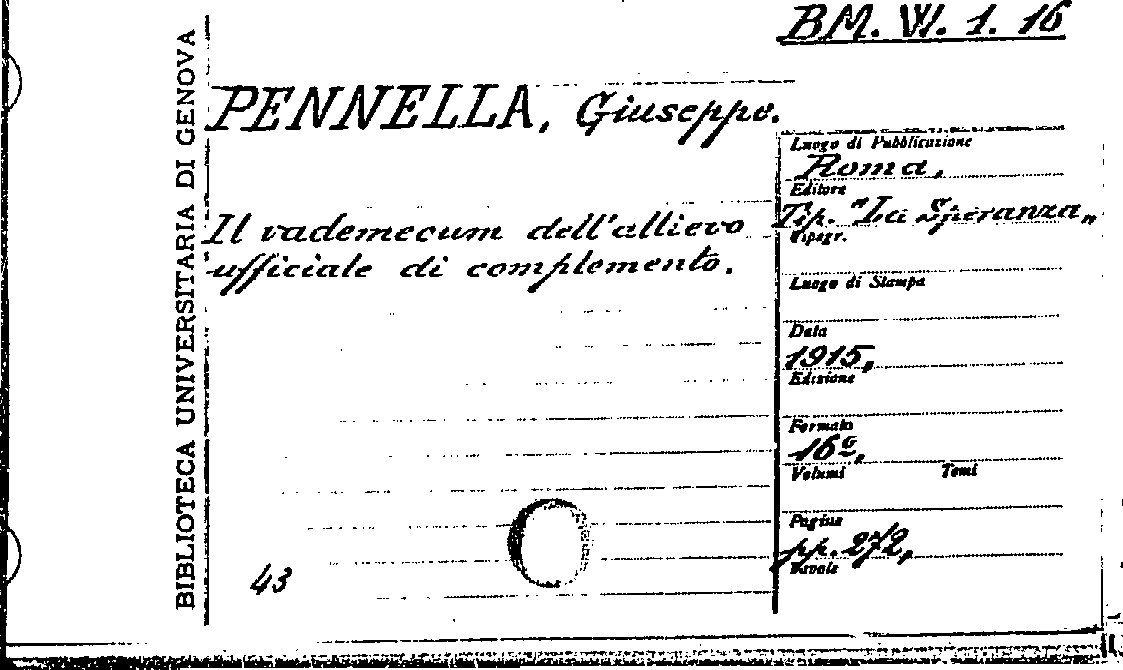 BM. W. 1. 16
BIBLIOTECA UNIVERSITARIA DI GENOVA
PENNELLA, Giuseppe.
Il vademecum dell'allievo
ufficiale di complemento.
43
Luogo di Pubblicazione
Roma,
Editore
Tip. "La Speranza„
Tipogr.
Luogo di Stampa
Data
1915,
Edizione
Formato
16º,
Volumi Tomi
Pagine
pp. 272,
Tavole